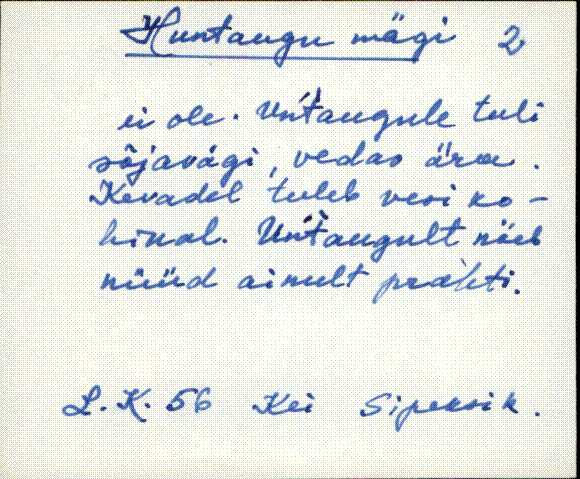 Huntaugu mägi 2
ei ole. Un't'augule tuli
sõjavägi, vedas ära.
Kevadel tuleb vesi ko-
hinal. Un't'augult näeb
nüüd ainult prahti.
L.K. 56 Kei Sipelsik.